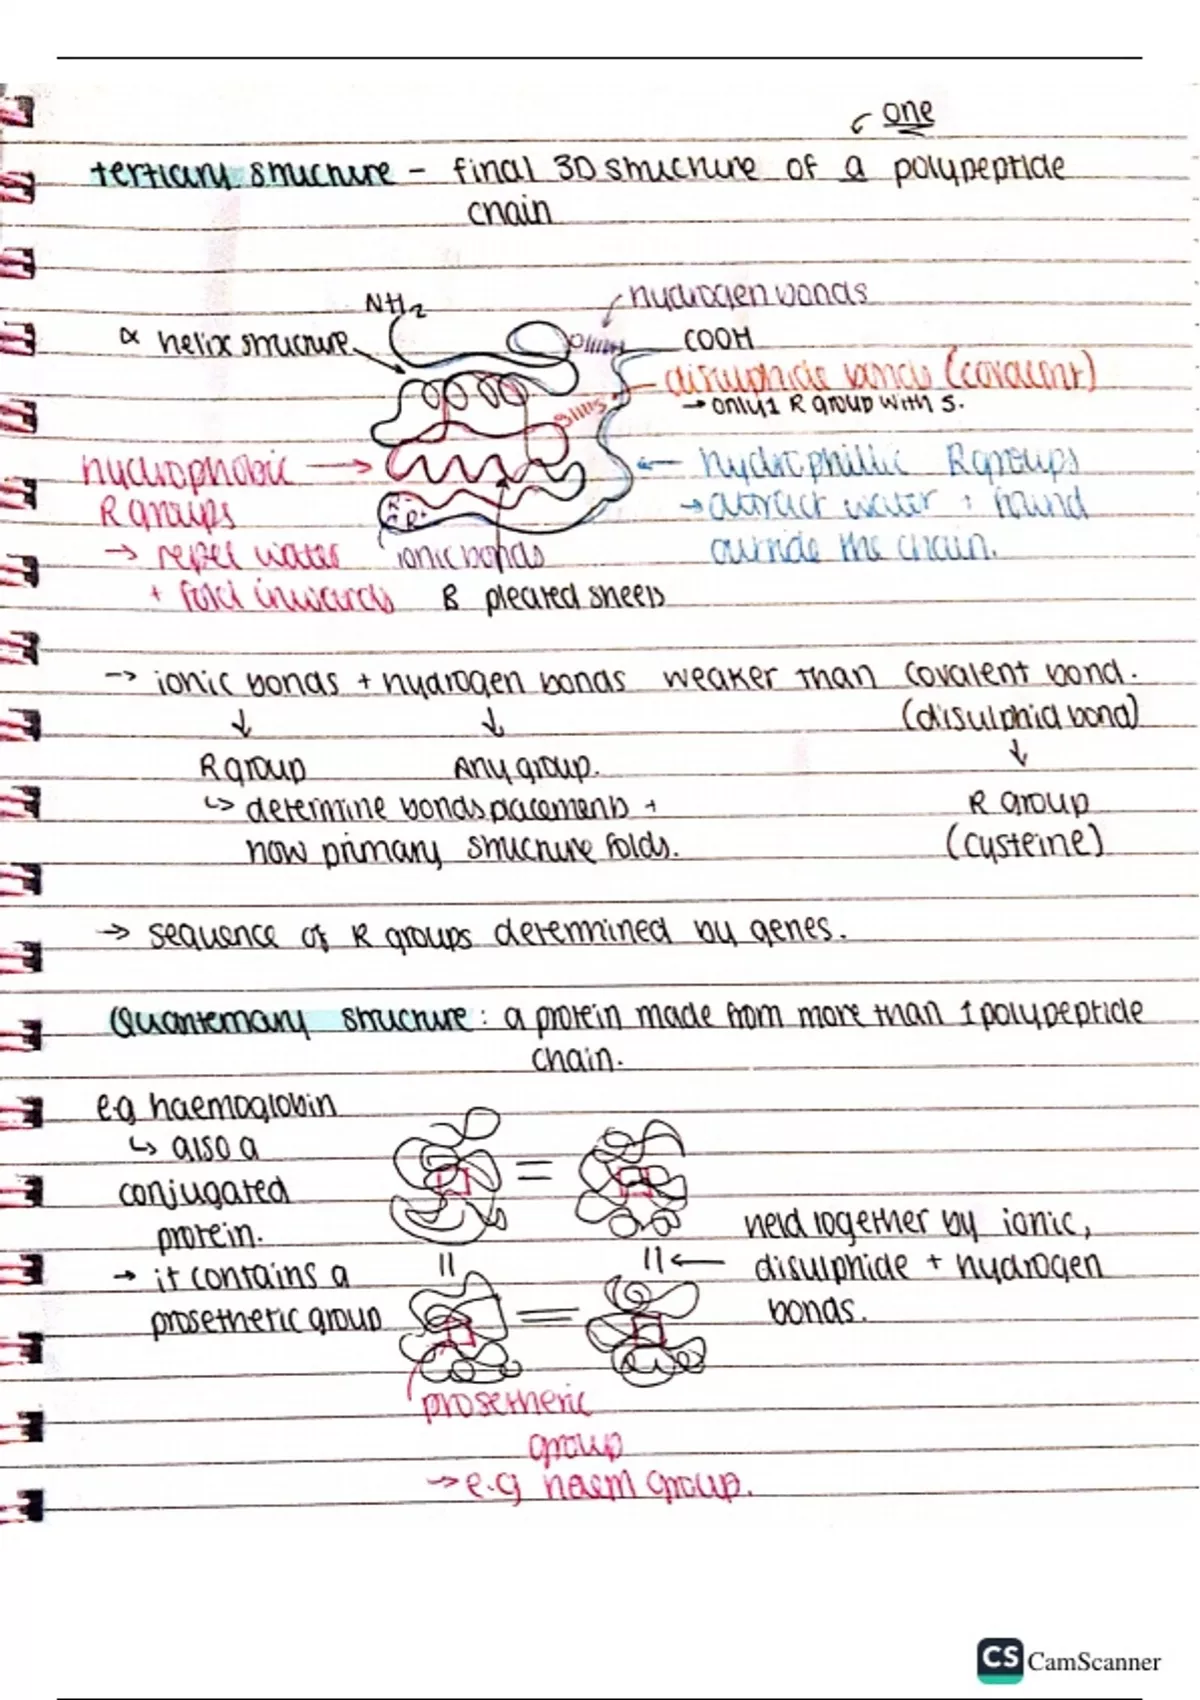 one
tertiary structure - final 3D structure of a polypeptide
chain
NH2
hydrogen bonds
α helix structure
COOH
disulphide bonds (covalent)
→ only 1 R group with S.
hydrophobic →
R groups
→ repel water
+ fold inwards
← hydrophillic R groups
→ attract water + found
outside the chain.
R-
R+
ionic bonds
B pleated sheets
→ ionic bonds + hydrogen bonds weaker than covalent bond.
(disulphid bond)
R group
Any group.
↳ determine bonds placements +
how primary structure folds.
R group
(cysteine)
→ sequence of R groups determined by genes.
Quarternary structure: a protein made from more than 1 polypeptide
chain.
e.g haemoglobin
↳ also a
conjugated
protein.
→ it contains a
prosetheric group
held together by ionic,
disulphide + hydrogen
bonds.
prosetheric
group
→ e.g haem group.
CS CamScanner